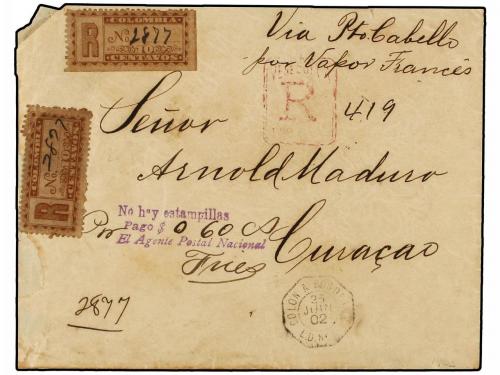 COLOMBIA
R No. 2877
10
CENTAVOS
Via Pto. Cabello
por Vapor Francés
R
419
COLOMBIA
R No. 2877
10
CENTAVOS
Señor
Arnold Maduro
No hay estampillas
Pago $ 0 60 cs
El Agente Postal Nacional
Curaçao
2877
COLON A
25
JUIN
02
L.D. No